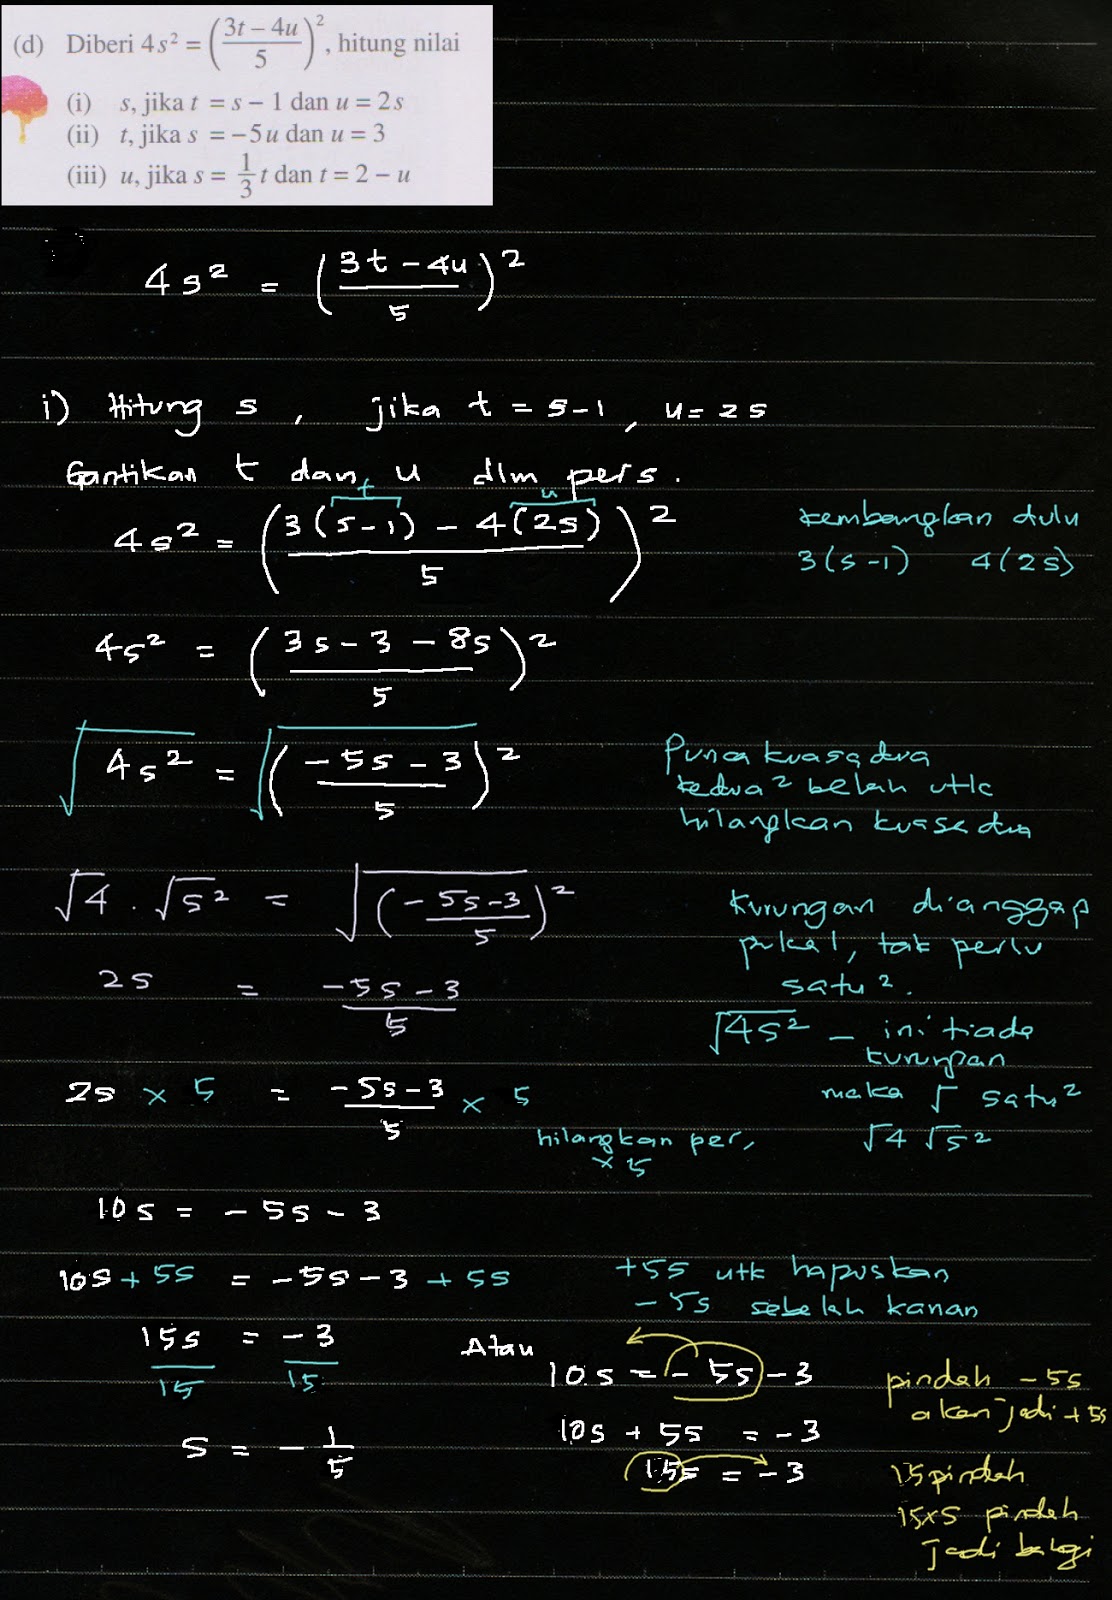 (d) Diberi 4s² = ((3t − 4u)/5)², hitung nilai
(i) s, jika t = s − 1 dan u = 2s
(ii) t, jika s = −5u dan u = 3
(iii) u, jika s = 1/3 t dan t = 2 − u
4s² = ((3t − 4u)/5)²
i) Hitung s, jika t = s−1, u = 2s
Gantikan t dan u dlm pers.
t u
4s² = ((3(s−1) − 4(2s))/5)²
kembangkan dulu
3(s−1) 4(2s)
4s² = ((3s − 3 − 8s)/5)²
√4s² = √((−5s − 3)/5)²
Punca kuasa dua
kedua² belah utk
hilangkan kuasa dua
√4 . √s² = √((−5s−3)/5)²
Kurungan dianggap
pukal, tak perlu
satu².
2s = (−5s − 3)/5
√4s² – ini tiada
kurungan
maka √ satu²
√4 √s²
2s × 5 = (−5s−3)/5 × 5
hilangkan per,
× 5
10s = −5s − 3
10s + 5s = −5s − 3 + 5s
+5s utk hapuskan
−5s sebelah kanan
15s/15 = −3/15
s = −1/5
Atau
10s = −5s − 3
pindah −5s
akan jadi +5s
10s + 5s = −3
15s = −3
15 pindah
15×s pindah
jadi bahagi